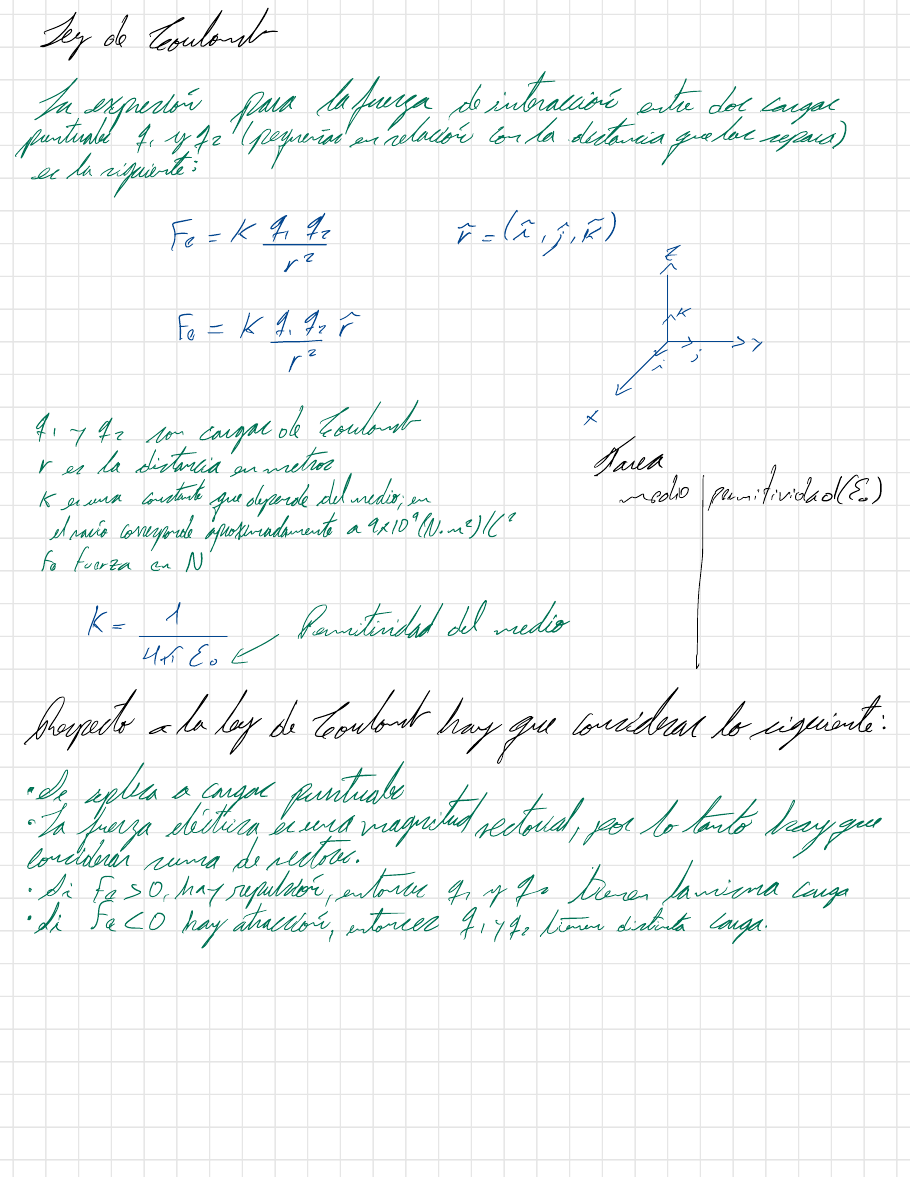 Ley de Coulomb
La expresión para la fuerza de interacción entre dos cargas
puntuales q₁ y q₂ (pequeñas en relación con la distancia que las separa)
es la siguiente:
Fe = K q₁ q₂ / r²
r̂ = (î, ĵ, k̂)
Fe = K q₁ q₂ / r² r̂
z
k
y
j
i
x
q₁ y q₂ son cargas de Coulomb
r es la distancia en metros
K es una constante que depende del medio; en
el vacío corresponde aproximadamente a 9x10⁹ (N·m²)/C²
Fe fuerza en N
Tarea
medio | permitividad (ε₀)
K = 1 / 4π ε₀
Permitividad del medio
Respecto a la ley de Coulomb hay que considerar lo siguiente:
• Se aplica a cargas puntuales
• La fuerza eléctrica es una magnitud vectorial, por lo tanto hay que
considerar suma de vectores.
• Si Fe > 0, hay repulsión, entonces q₁ y q₂ tienen la misma carga
• Si Fe < 0 hay atracción, entonces q₁ y q₂ tienen distinta carga.